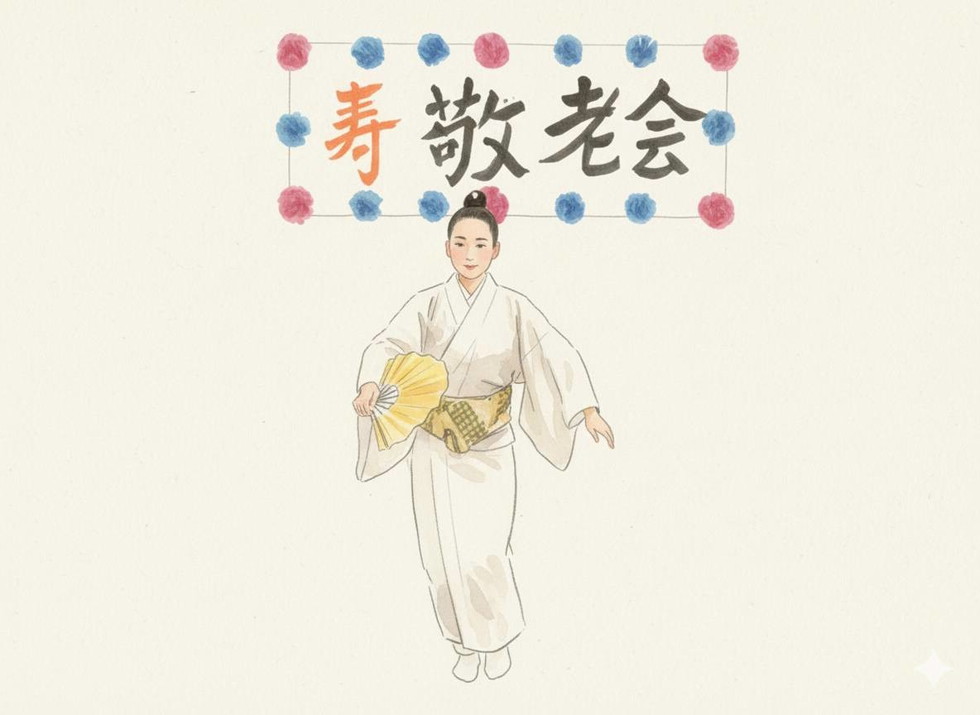 寿 敬老会